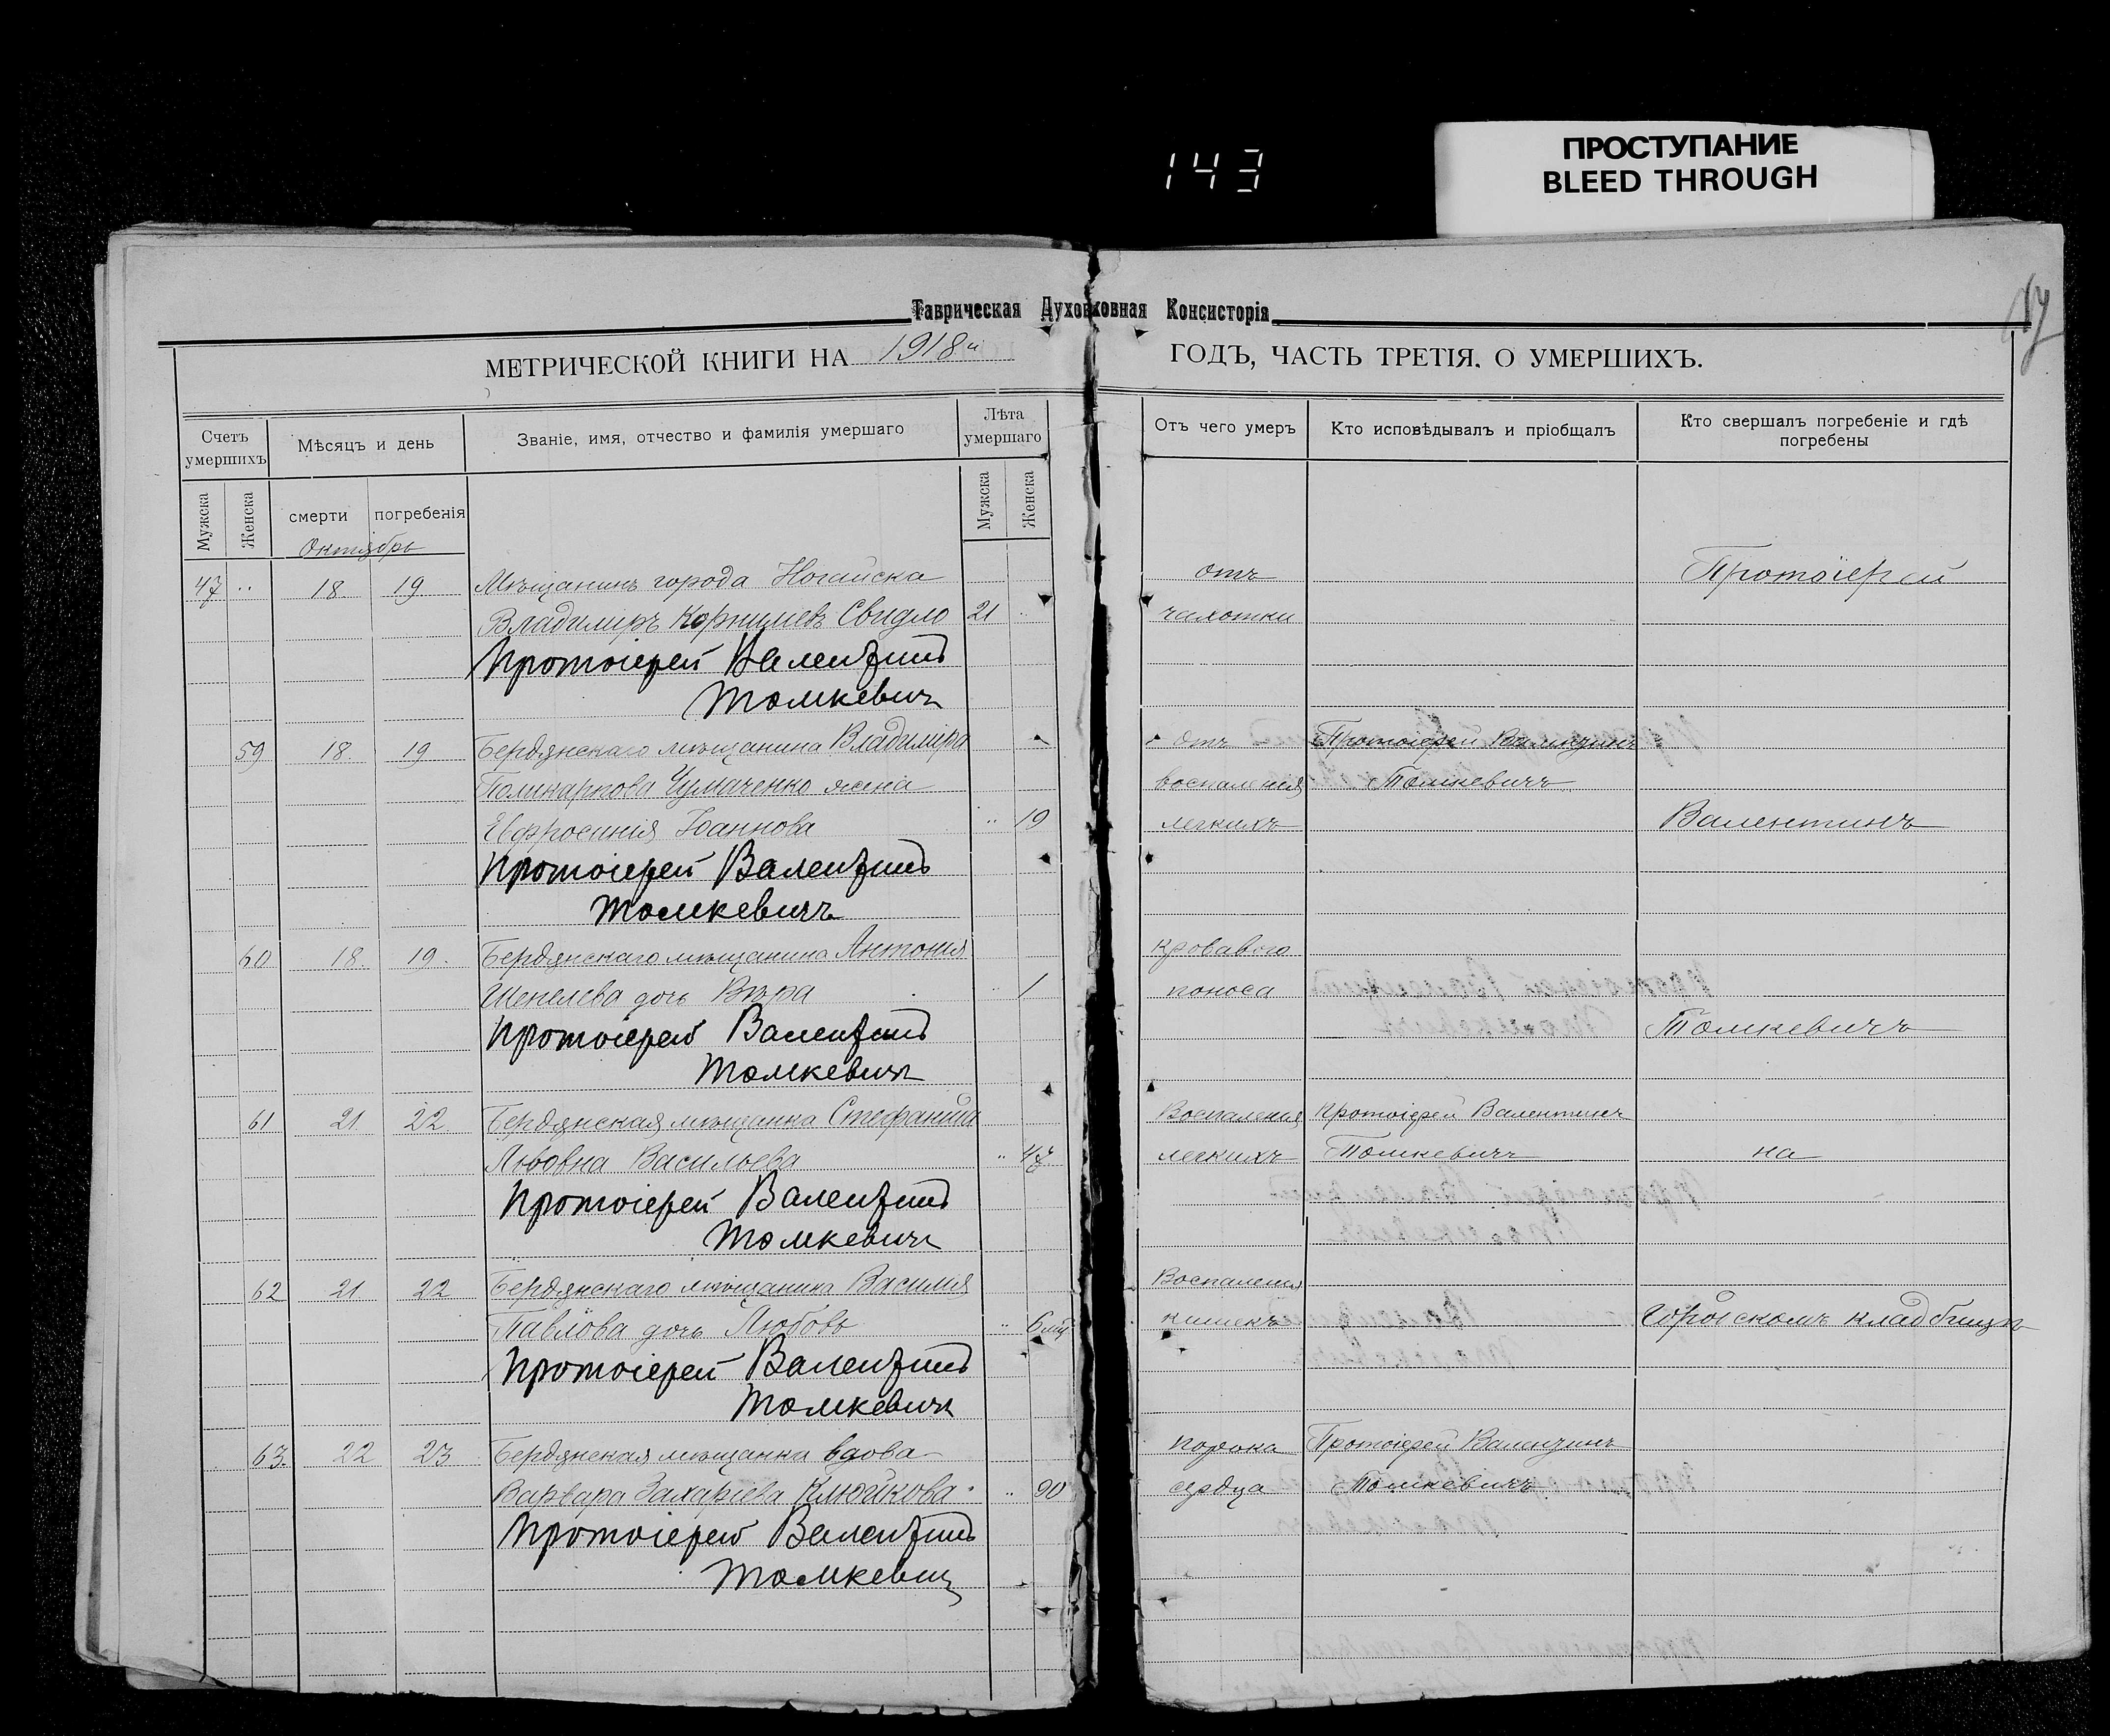 143
ПРОСТУПАНИЕ
BLEED THROUGH
Таврическая Духовная Консисторія
МЕТРИЧЕСКОЙ КНИГИ НА 1918 й ГОДЪ, ЧАСТЬ ТРЕТІЯ. О УМЕРШИХЪ.
Счетъ умершихъ
Мѣсяцъ и день
Званіе, имя, отчество и фамилія умершаго
Лѣта умершаго
Отъ чего умеръ
Кто исповѣдывалъ и пріобщалъ
Кто свершалъ погребеніе и гдѣ погребены
Мужска
Женска
смерти
погребенія
Мужска
Женска
Октябрь
47 18 19 Мѣщанинъ города Ногайска отъ Протоіерей
Владимиръ Корнилиевъ Свидло 21 чахотки
Протоіерей Валентинъ
Томкевичъ
59 18. 19 Бердянскаго мѣщанина Владиміра отъ Протоіерей Валентинъ
Поликарпова Чумаченко жена воспаленія Томкевичъ
Евфросинія Іоаннова 19 легкихъ Валентинъ
Протоіерей Валентинъ
Томкевичъ
60 18. 19. Бердянскаго мѣщанина Антонія кровавого
Шепелева дочь Вѣра 1 поноса
Протоіерей Валентинъ Томкевичъ
Томкевичъ
61 21 22 Бердянская мѣщанка Стефанида Воспаленія Протоіерей Валентинъ
Львовна Васильева 47 легкихъ Томкевичъ на
Протоіерей Валентинъ
Томкевичъ
62 21 22 Бердянскаго мѣщанина Василія Воспаленія
Павлова дочь Любовь 6 мц кишекъ Городскомъ кладбищѣ
Протоіерей Валентинъ
Томкевичъ
63. 22 23 Бердянская мѣщанка вдова порока Протоіерей Валентинъ
Варвара Захаріева Клюйкова 90 сердца Томкевичъ
Протоіерей Валентинъ
Томкевичъ